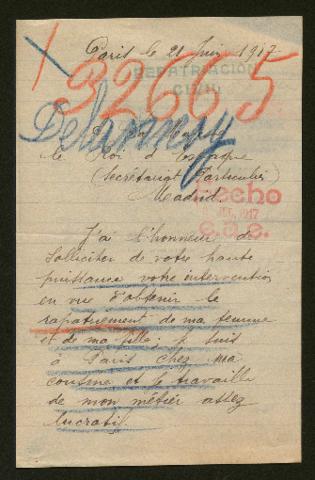 Paris le 21 Juin 1917
1
REPATRIACION
CIVIL
32665
Delannoy
le Roi d'Espagne
(Secrétariat Particulier)
Madrid.
Hecho
1917
J'ai l'honneur de
solliciter de votre haute
puissance votre intervention
en vue d'obtenir le
rapatriement de ma femme
et de ma fille; je suis
à Paris chez ma
cousine et je travaille
de mon métier assez
lucratif.